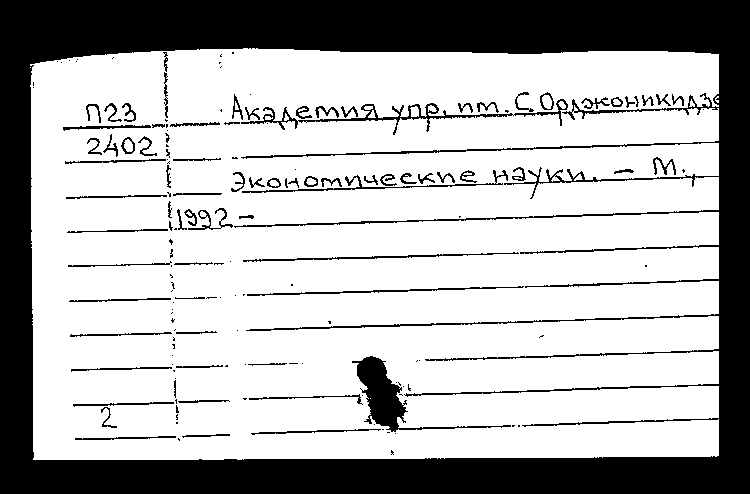 П23 Академия упр. им. С. Орджоникидзе
2402
Экономические науки. – М.,
1992 –
2